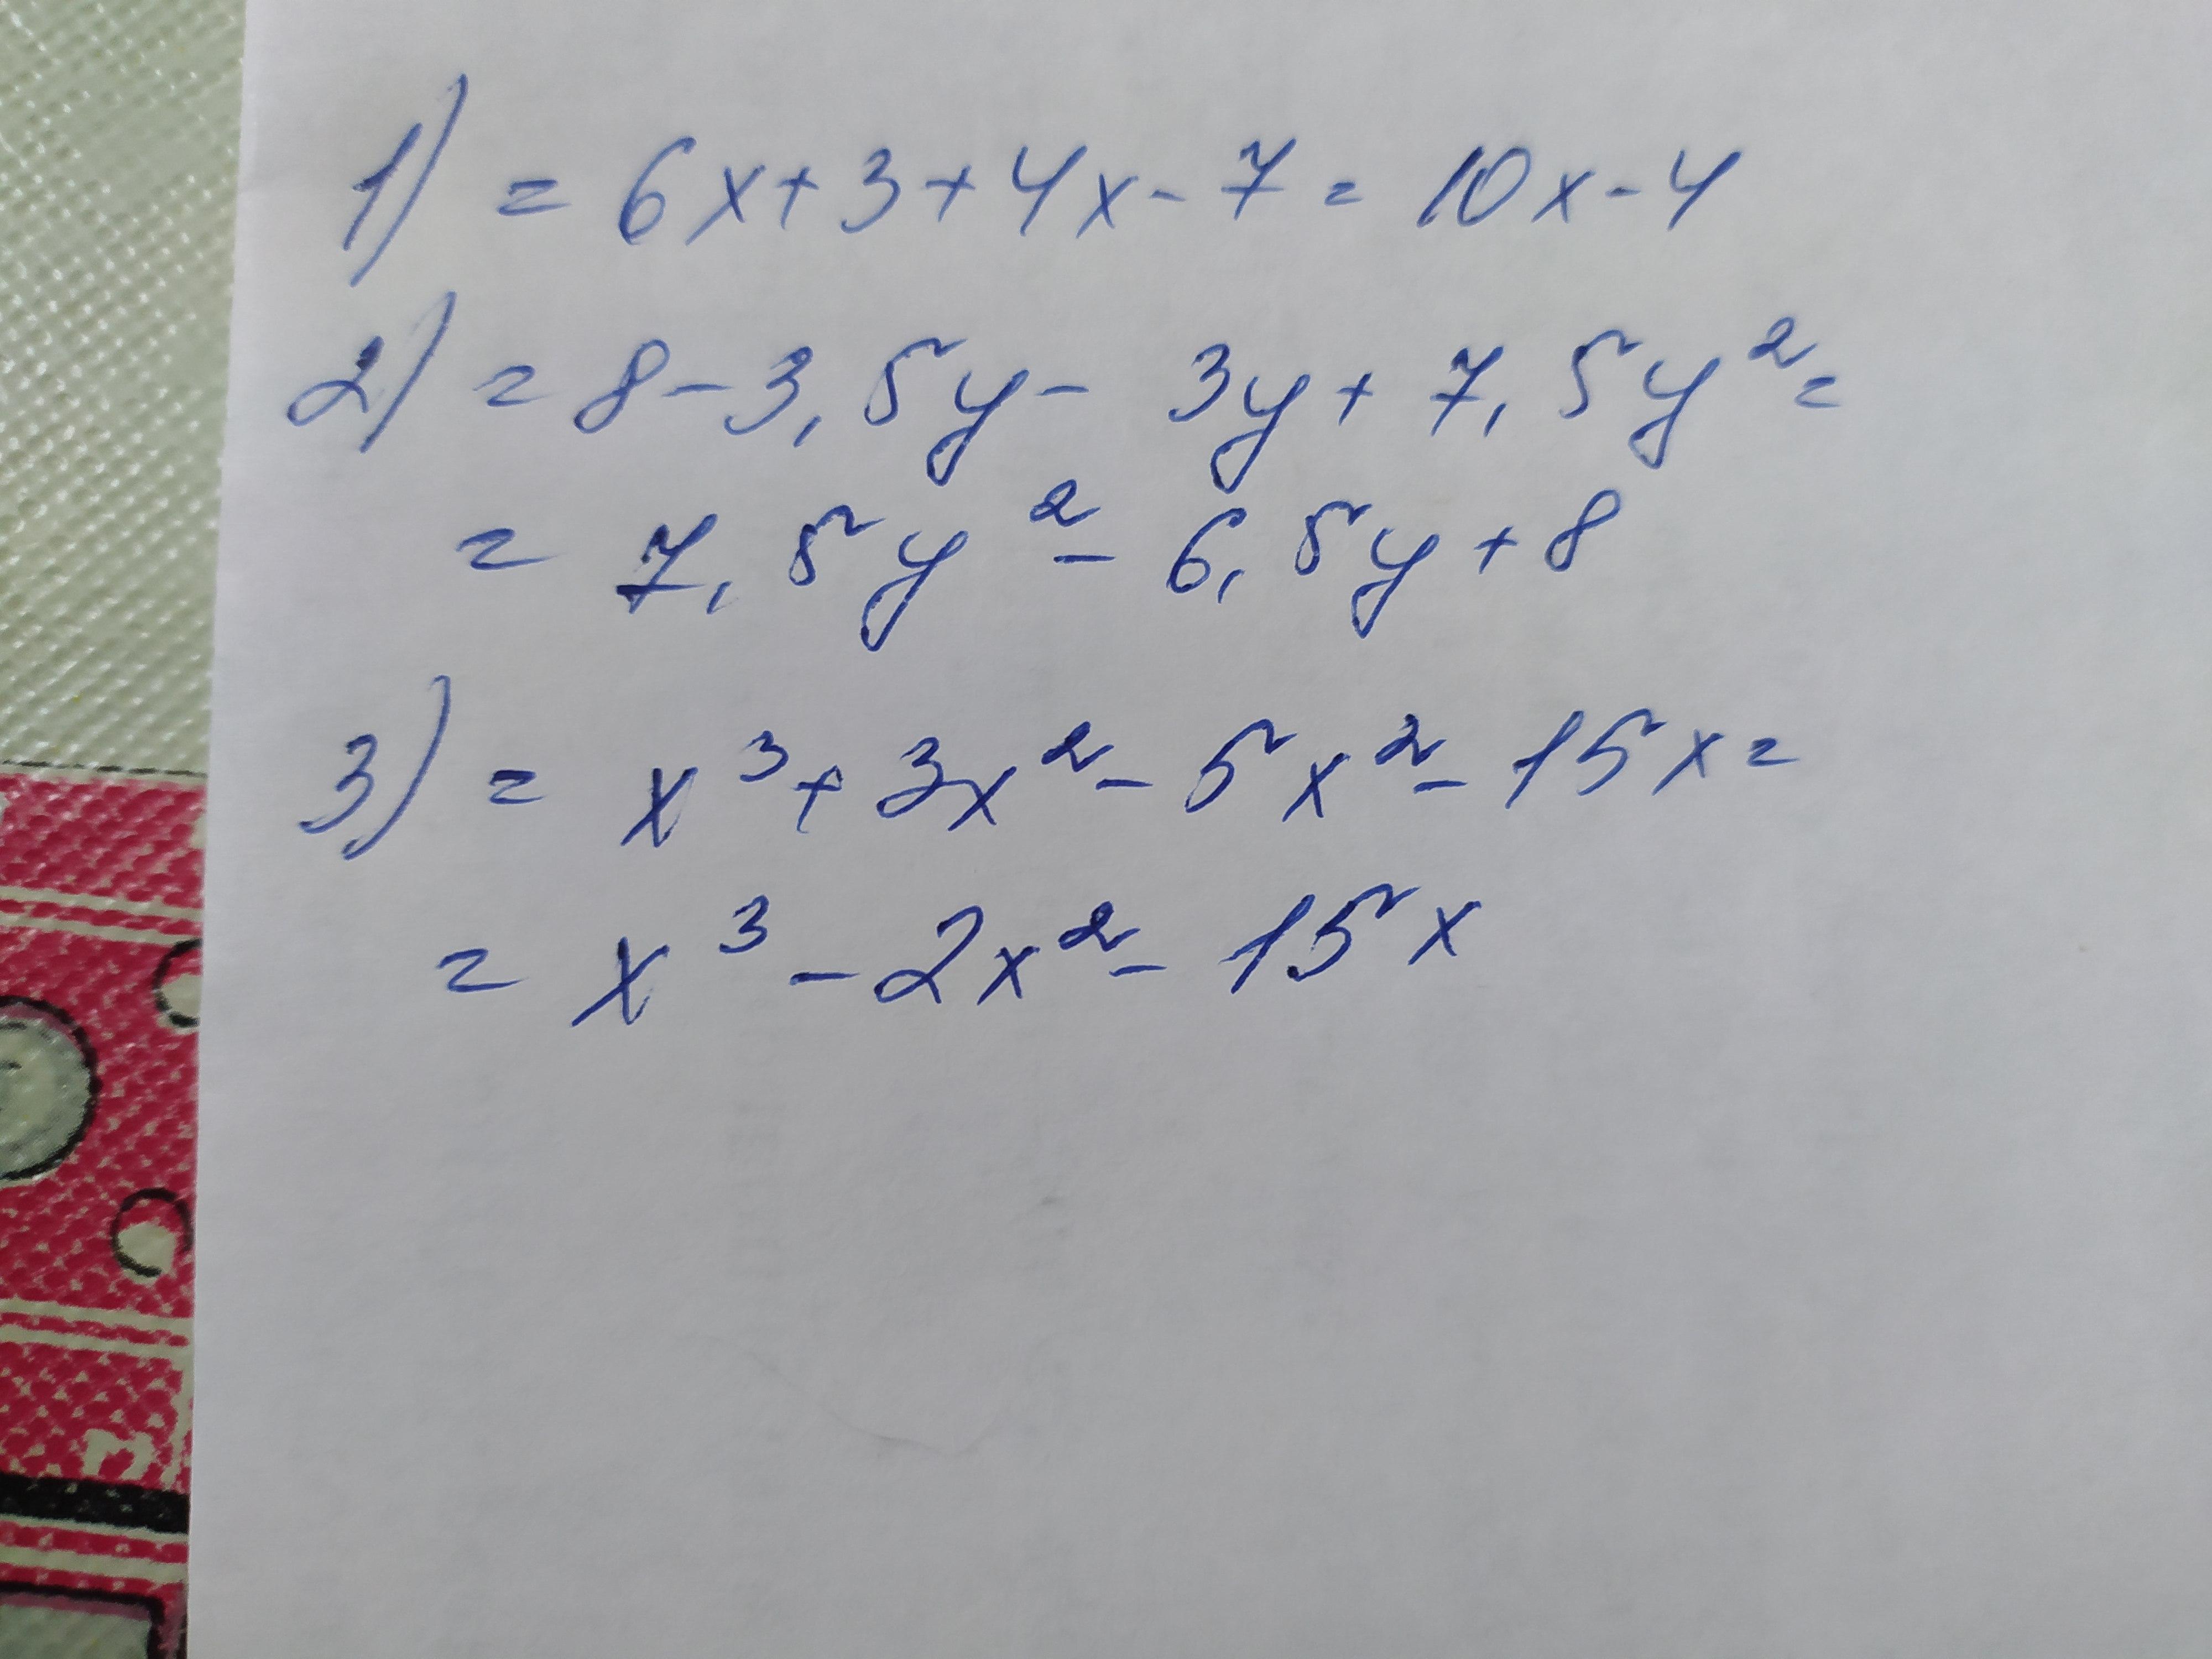 1) = 6x + 3 + 4x - 7 = 10x - 4
2) = 8 - 3,5y - 3y + 7,5y² =
= 7,5y² - 6,5y + 8
3) = x³ + 3x² - 5x² - 15x =
= x³ - 2x² - 15x